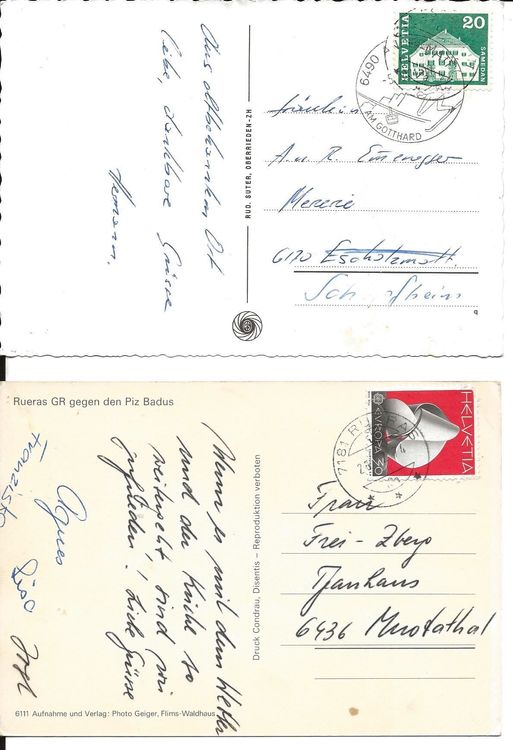 Aus altbekanntem Ort
liebe, dankbare Grüsse
Hermann.
RUD. SUTER, OBERRIEDEN-ZH
HELVETIA
20
SAMEDAN
6490 A
AM GOTTHARD
Fräulein
A. u. R. Emmenegger
Mercerie
6170 Escholzmatt.
Schüpfheim
q
Rueras GR gegen den Piz Badus
Wenn es mit dem Wetter
und der Küche so
weitergeht sind wir
zufrieden! Liebe Grüsse
Agnes
Lisa
Franziska
Druck Condrau, Disentis – Reproduktion verboten
6111 Aufnahme und Verlag: Photo Geiger, Flims-Waldhaus
HELVETIA
EUROPA
7181 R
Frau
Frei-Zberg
Pfarrhaus
6436 Muotathal